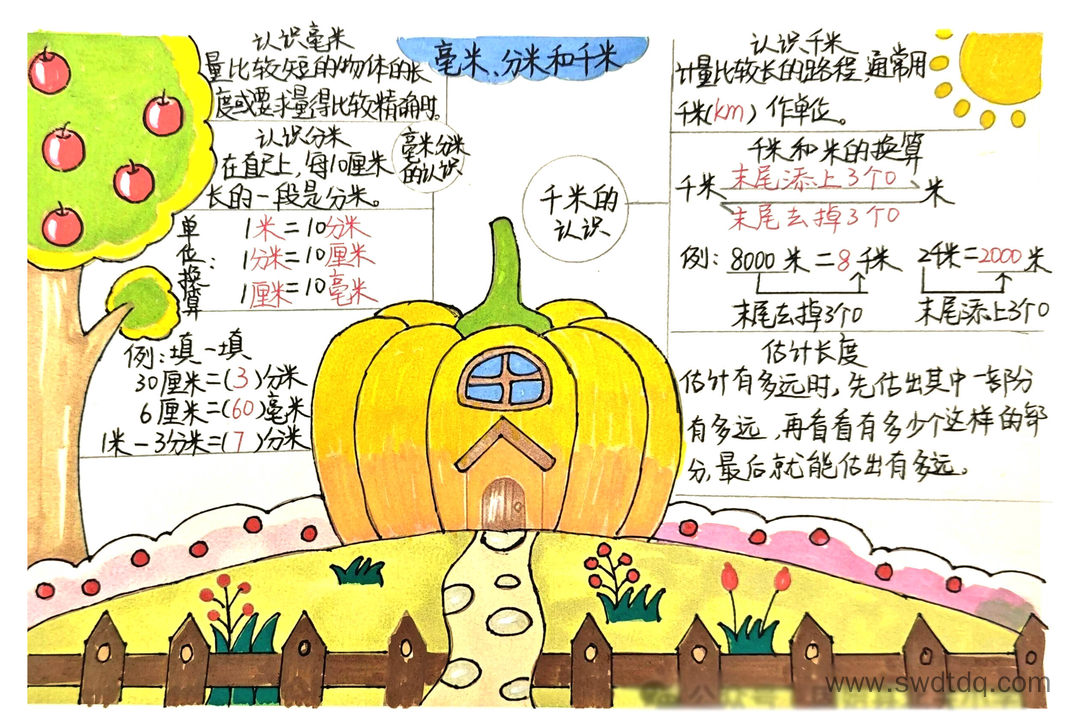 毫米、分米和千米
认识毫米
量比较短的物体的长
度或要求量得比较精确时。
毫米分米
的认识
认识分米
在直尺上，每10厘米
长的一段是分米。
单位换算：
1米=10分米
1分米=10厘米
1厘米=10毫米
例：填一填
30厘米=(3)分米
6厘米=(60)毫米
1米-3分米=(7)分米
千米的
认识
认识千米
计量比较长的路程，通常用
千米(km)作单位。
千米和米的换算
千米 末尾添上3个0 米
末尾去掉3个0
例：8000米=8千米 2千米=2000米
末尾去掉3个0 末尾添上3个0
估计长度
估计有多远时，先估出其中一部分
有多远，再看看有多少个这样的部
分，最后就能估出有多远。
www.swdtdq.com